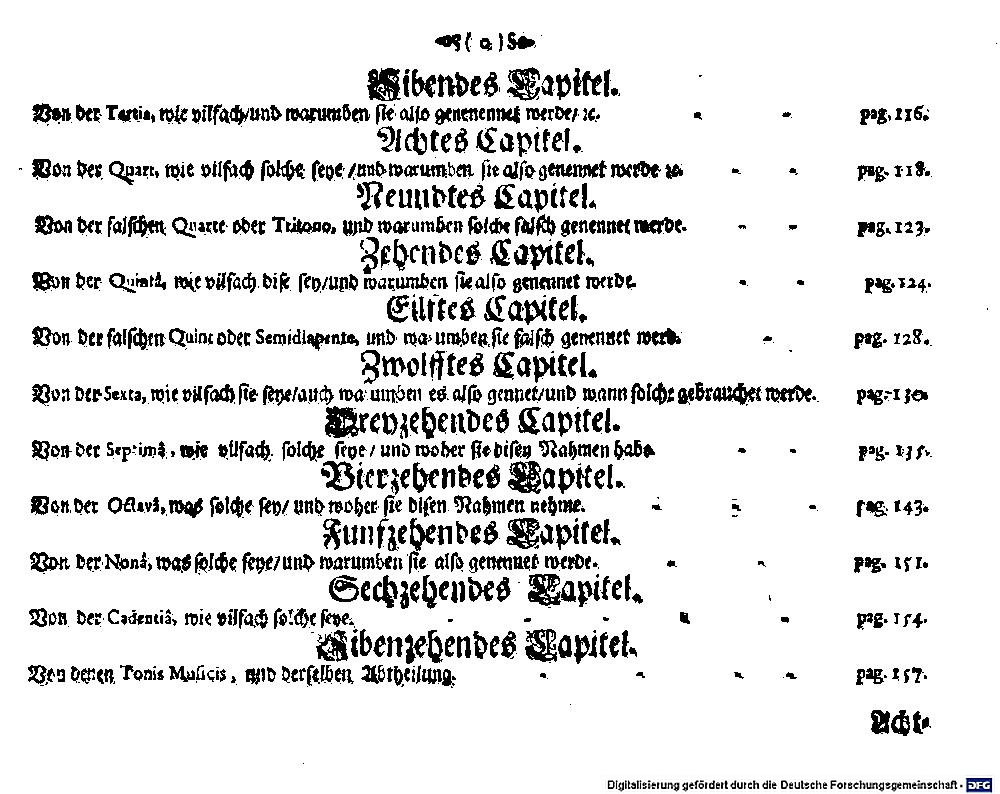 ( o )
Sibendes Capitel.
Von der Tertia, wie vilfach/und warumben sie also genenennet werde/ ꝛc. - - pag. 116.
Achtes Capitel.
Von der Quart, wie vilfach solche seye /und warumben sie also genennet werde ꝛc. - - pag. 118.
Neundtes Capitel.
Von der falschen Quarte oder Tritono, und warumben solche falsch genennet werde. - - pag. 123.
Zehendes Capitel.
Von der Quintâ, wie vilfach dise sey/und warumben sie also genennet werde. - - pag. 124.
Eilftes Capitel.
Von der falschen Quint oder Semidiapente, und warumben sie falsch genennet werd. - pag. 128.
Zwolfftes Capitel.
Von der Sexta, wie vilfach sie seye/auch warumben es also gennet/und wann solche gebrauchet werde. pag. 130.
Dreyzehendes Capitel.
Von der Septimâ, wie vilfach solche seye / und woher sie disen Nahmen habe. - - pag. 135.
Vierzehendes Capitel.
Von der Octavâ, was solche sey/ und woher sie disen Nahmen nehme. - - - pag. 143.
Funfzehendes Capitel.
Von der Nonâ, was solche seye/und warumben sie also genennet werde. - - pag. 151.
Sechzehendes Capitel.
Von der Cadentiâ, wie vilfach solche seye. - - - - - pag. 154.
Sibenzehendes Capitel.
Von denen Tonis Musicis, und derselben Abtheilung. - - - - pag. 157.
Acht-
Digitalisierung gefördert durch die Deutsche Forschungsgemeinschaft - DFG